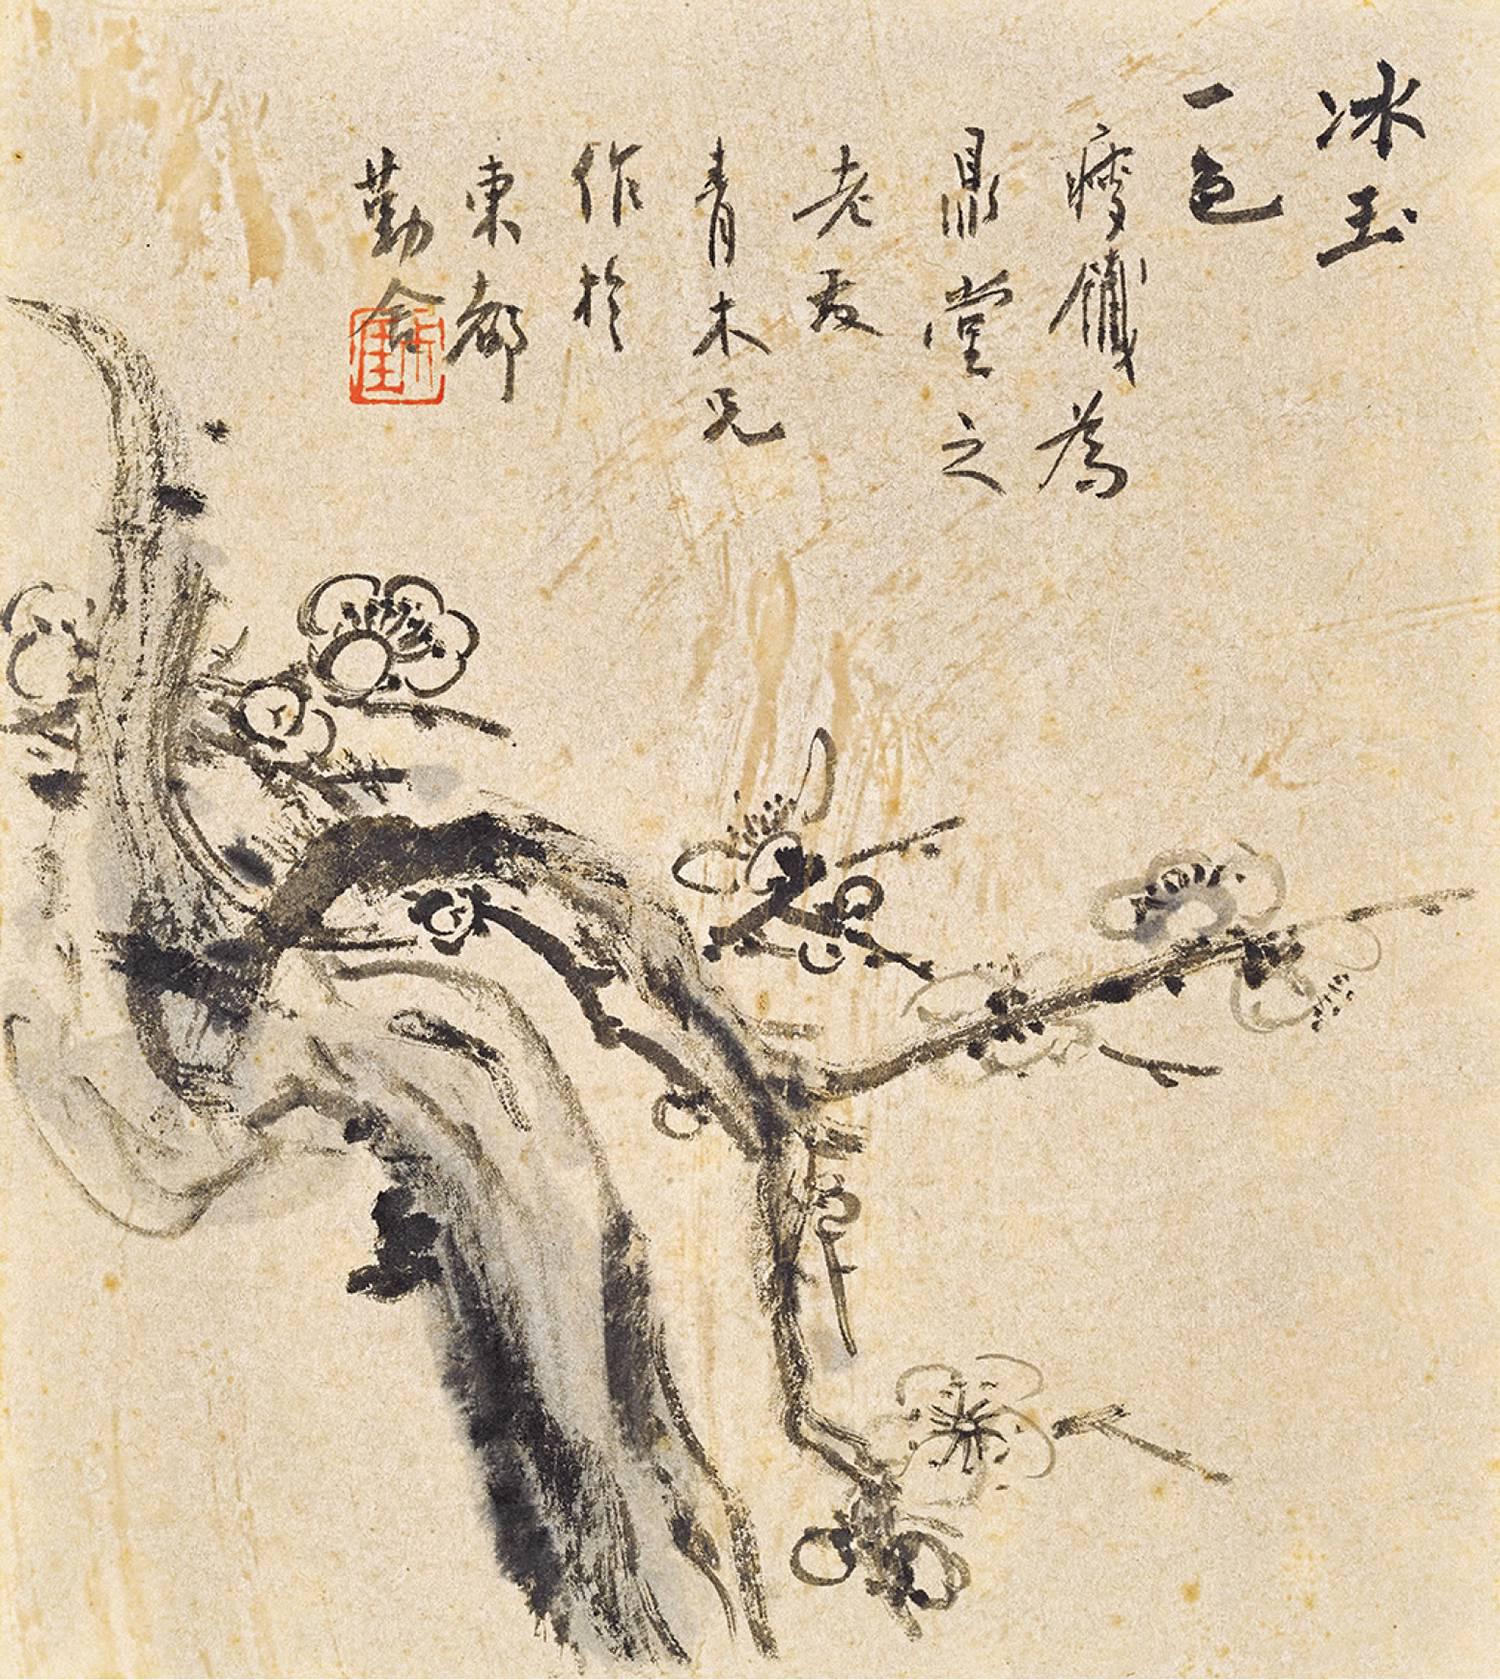 冰玉
一色
瘦鐵為
鼎堂之
老友
青木兄
作於
東都
勤舍